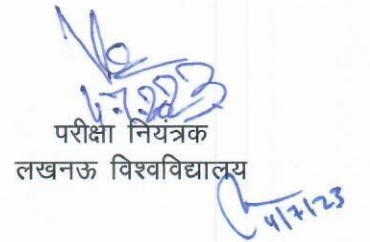 4.7.2023
परीक्षा नियंत्रक
लखनऊ विश्वविद्यालय
4/7/23